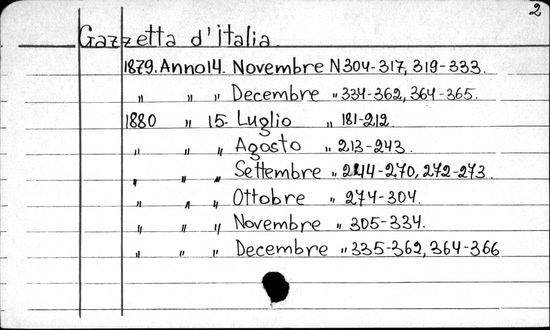 2
Gazzetta d'Italia.
1879. Anno 14. Novembre N 304-317, 319-333.
" " " Decembre " 334-362, 364-365.
1880 " 15- Luglio " 181-212
" " " Agosto " 213-243.
" " " Settembre " 244-270, 272-273.
" " " Ottobre " 274-304.
" " " Novembre " 305-334.
" " " Decembre " 335-362, 364-366